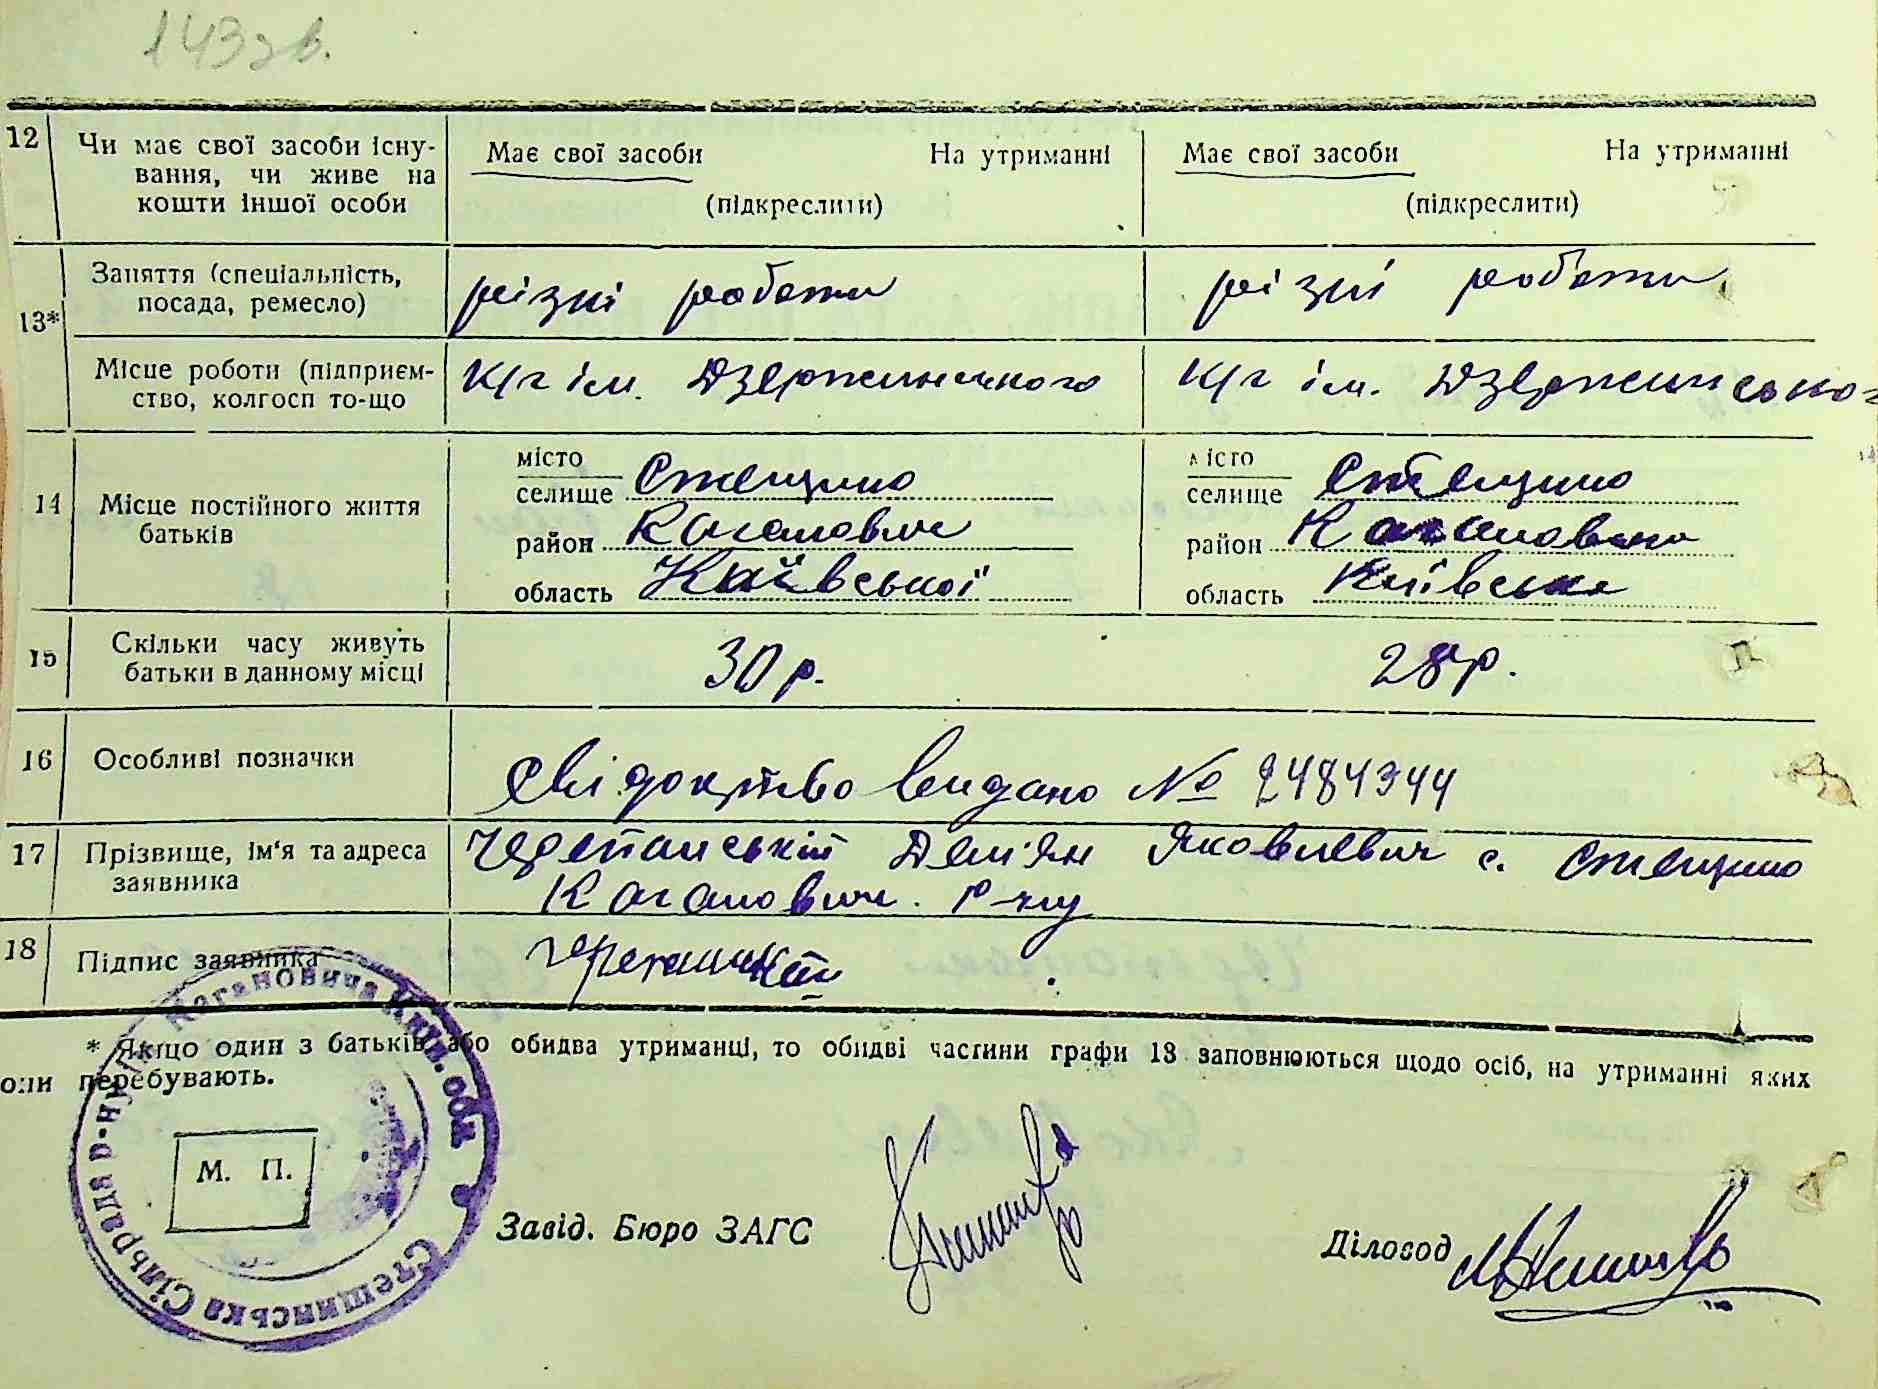 143 зв.
12 Чи має свої засоби існу- Має свої засоби На утриманні Має свої засоби На утриманні
вання, чи живе на
кошти іншої особи (підкреслити) (підкреслити)
13* Заняття (спеціальність, різні роботи різні роботи
посада, ремесло)
Місце роботи (підприєм- К/г ім. Дзержинського К/г ім. Дзержинського
ство, колгосп то-що
14 Місце постійного життя батьків
місто
селище Стещино
район Каганович
область Київської
місто
селище Стещино
район
область Київська
15 Скільки часу живуть 30 р. 28 р.
батьки в данному місці
16 Особливі позначки Свідоцтво видано № 2484344
17 Прізвище, ім'я та адреса Черепанський Дем'ян Якович с. Стещино
заявника Каганович. р-ну
18 Підпис заявника
* Якщо один з батьків або обидва утриманці, то обидві частини графи 13 заповнюються щодо осіб, на утриманні яких
они перебувають.
М. П.
Стещинська Сільрада р-ну ім. Кагановича Київ. обл.
Завід. Бюро ЗАГС
Діловод